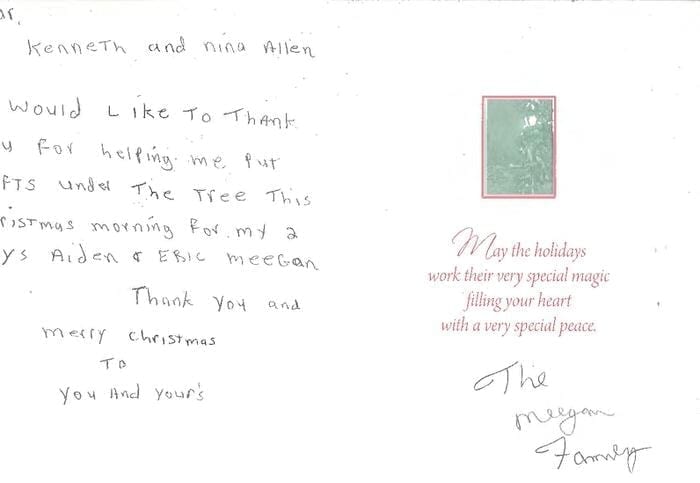 ar,
Kenneth and nina Allen
Would Like To Thank
u For helping me put
FTS under The Tree This
ristmas morning For my 2
ys Aiden & ERIC meegan
Thank you and
merry christmas
TO
you And your's
May the holidays
work their very special magic
filling your heart
with a very special peace.
The
meegan
Family